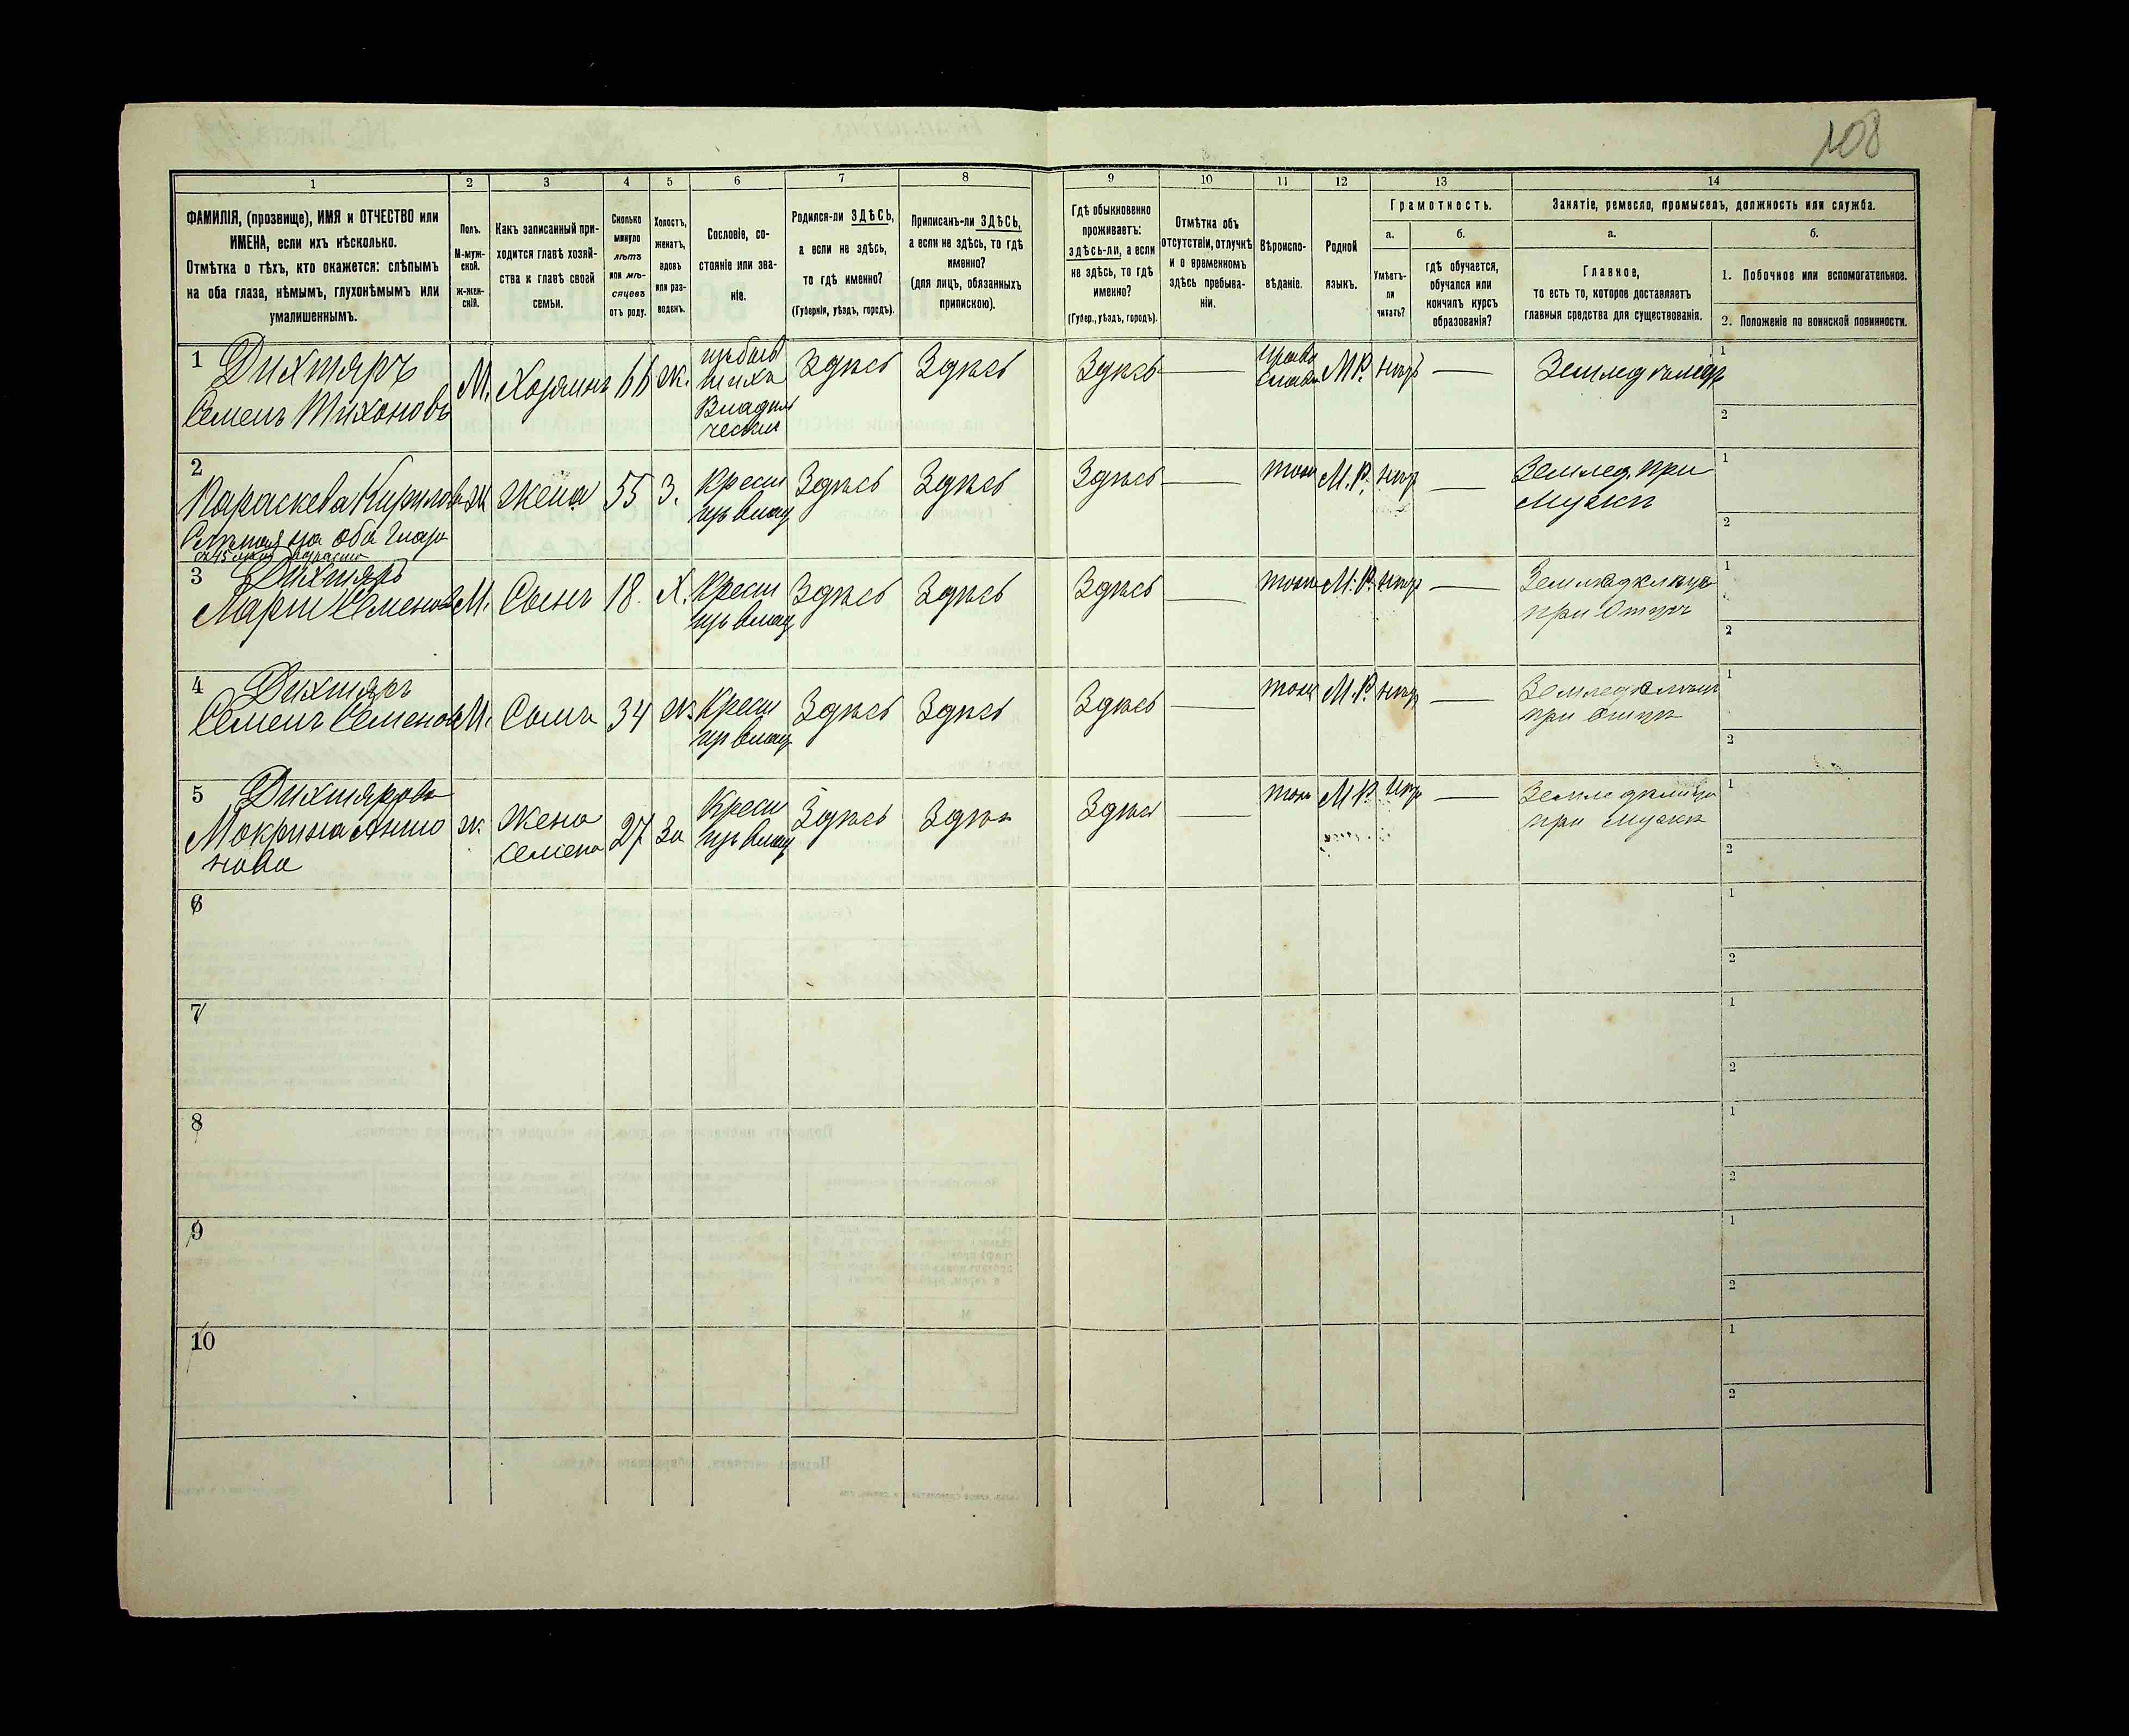 108
1
2
3
4
5
6
7
8
9
10
11
12
13
14
ФАМИЛІЯ, (прозвище), ИМЯ и ОТЧЕСТВО или
ИМЕНА, если ихъ нѣсколько.
Отмѣтка о тѣхъ, кто окажется: слѣпымъ
на оба глаза, нѣмымъ, глухонѣмымъ или
умалишеннымъ.
Полъ.
М-муж-
ской.
ж-жен-
скій.
Какъ записанный при-
ходится главѣ хозяй-
ства и главѣ своей
семьи.
Сколько
минуло
лѣтъ
или мѣ-
сяцевъ
отъ роду.
Холостъ,
женатъ,
вдовъ
или раз-
веденъ.
Сословіе, со-
стояніе или зва-
ніе.
Родился-ли ЗДѢСЬ,
а если не здѣсь,
то гдѣ именно?
(Губернія, уѣздъ, городъ).
Приписанъ-ли ЗДѢСЬ,
а если не здѣсь, то гдѣ
именно?
(для лицъ, обязанныхъ
припискою).
Гдѣ обыкновенно
проживаетъ:
здѣсь-ли, а если
не здѣсь, то гдѣ
именно?
(Губер., уѣздъ, городъ).
Отмѣтка объ
отсутствіи, отлучкѣ
и о временномъ
здѣсь пребыва-
ніи.
Вѣроиспо-
вѣданіе.
Родной
языкъ.
Грамотность.
а.
Умѣетъ-
ли
читать?
б.
гдѣ обучается,
обучался или
кончилъ курсъ
образованія?
Занятіе, ремесло, промыселъ, должность или служба.
а.
Главное,
то есть то, которое доставляетъ
главныя средства для существованія.
б.
1. Побочное или вспомогательное.
2. Положеніе по воинской повинности.
1 Дихтяръ
Семенъ Тихоновъ
М.
Хозяинъ
66
ж.
изъ быв
шихъ
Владѣль
ческих
Здѣсь
Здѣсь
Здѣсь
—
Право
слав
М.Р.
нѣтъ
—
Земледѣлецъ
1
2
2
Параскева Кирилов
Слѣпая на оба глаза
ж
жена
55
З.
Крест
изъ влад
Здѣсь
Здѣсь
Здѣсь
—
тож
М.Р.
нѣт
—
Землед. при
мужѣ
1
2
3 Дихтяръ
Семенов
М.
Сынъ
18
Х.
Крест
изъ влад
Здѣсь
Здѣсь
Здѣсь
—
тож
М.Р.
нѣт
—
при Отцѣ
1
2
4 Дихтяръ
Семенъ Семенов
М.
Сынъ
34
ж.
Крест
изъ влад
Здѣсь
Здѣсь
Здѣсь
—
тож
М.Р.
нѣт
—
при отцѣ
1
2
5 Дихтярова
Мокрина Анто
нова
ж.
Жена
Семена
27
За
Крест
изъ влад
Здѣсь
Здѣсь
Здѣсь
—
тож
М.Р.
нѣт
—
при мужѣ
1
2
6
1
2
7
1
2
8
1
2
9
1
2
10
1
2